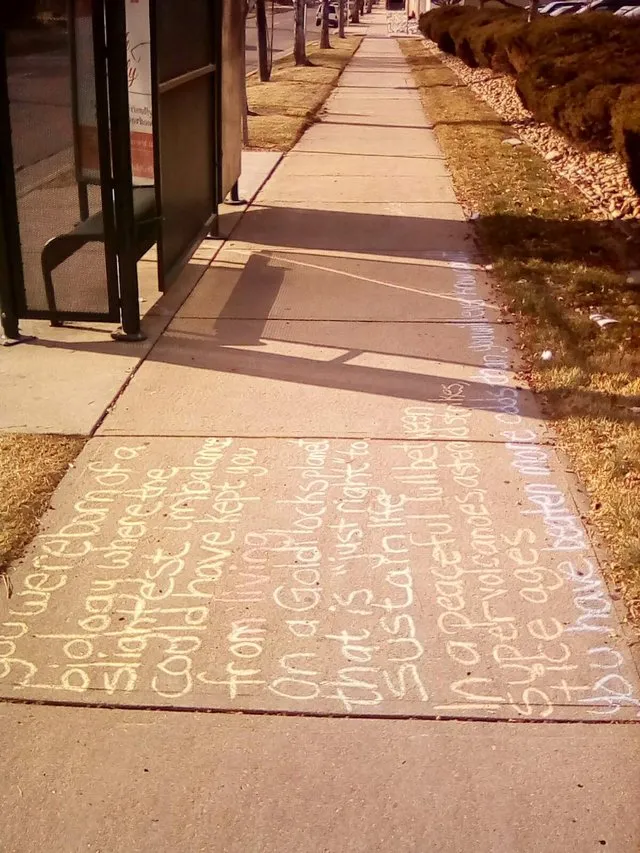 you were born of a
biology where the
slightest imbalance
could have kept you
from living
on a Goldilocks planet
that is "just right" to
sustain life
In a peaceful lull between
super volcanoes, asteroid strikes,
+ ice ages
you have beaten more odds than